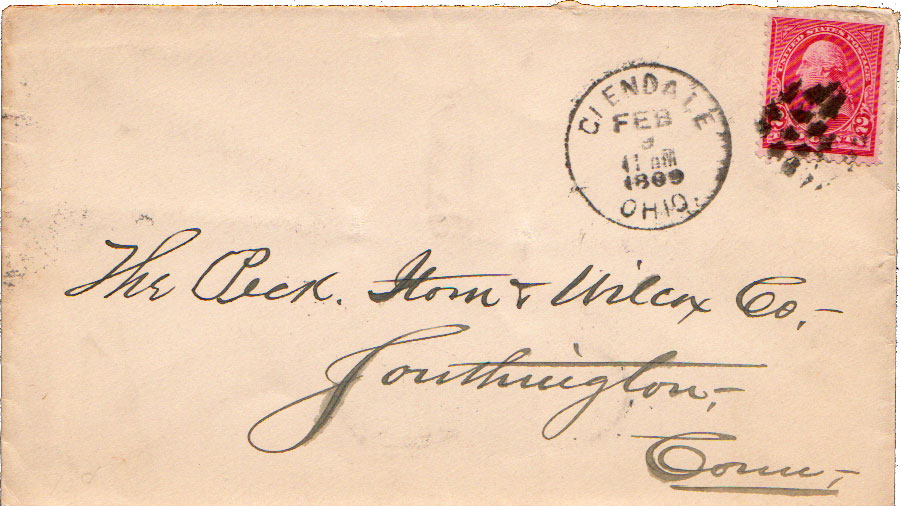 GLENDALE
FEB
9
11 AM
1899
OHIO.
UNITED STATES POSTAGE
2 2
The Peck. Stow & Wilcox Co.,-
Southington,-
Conn,-